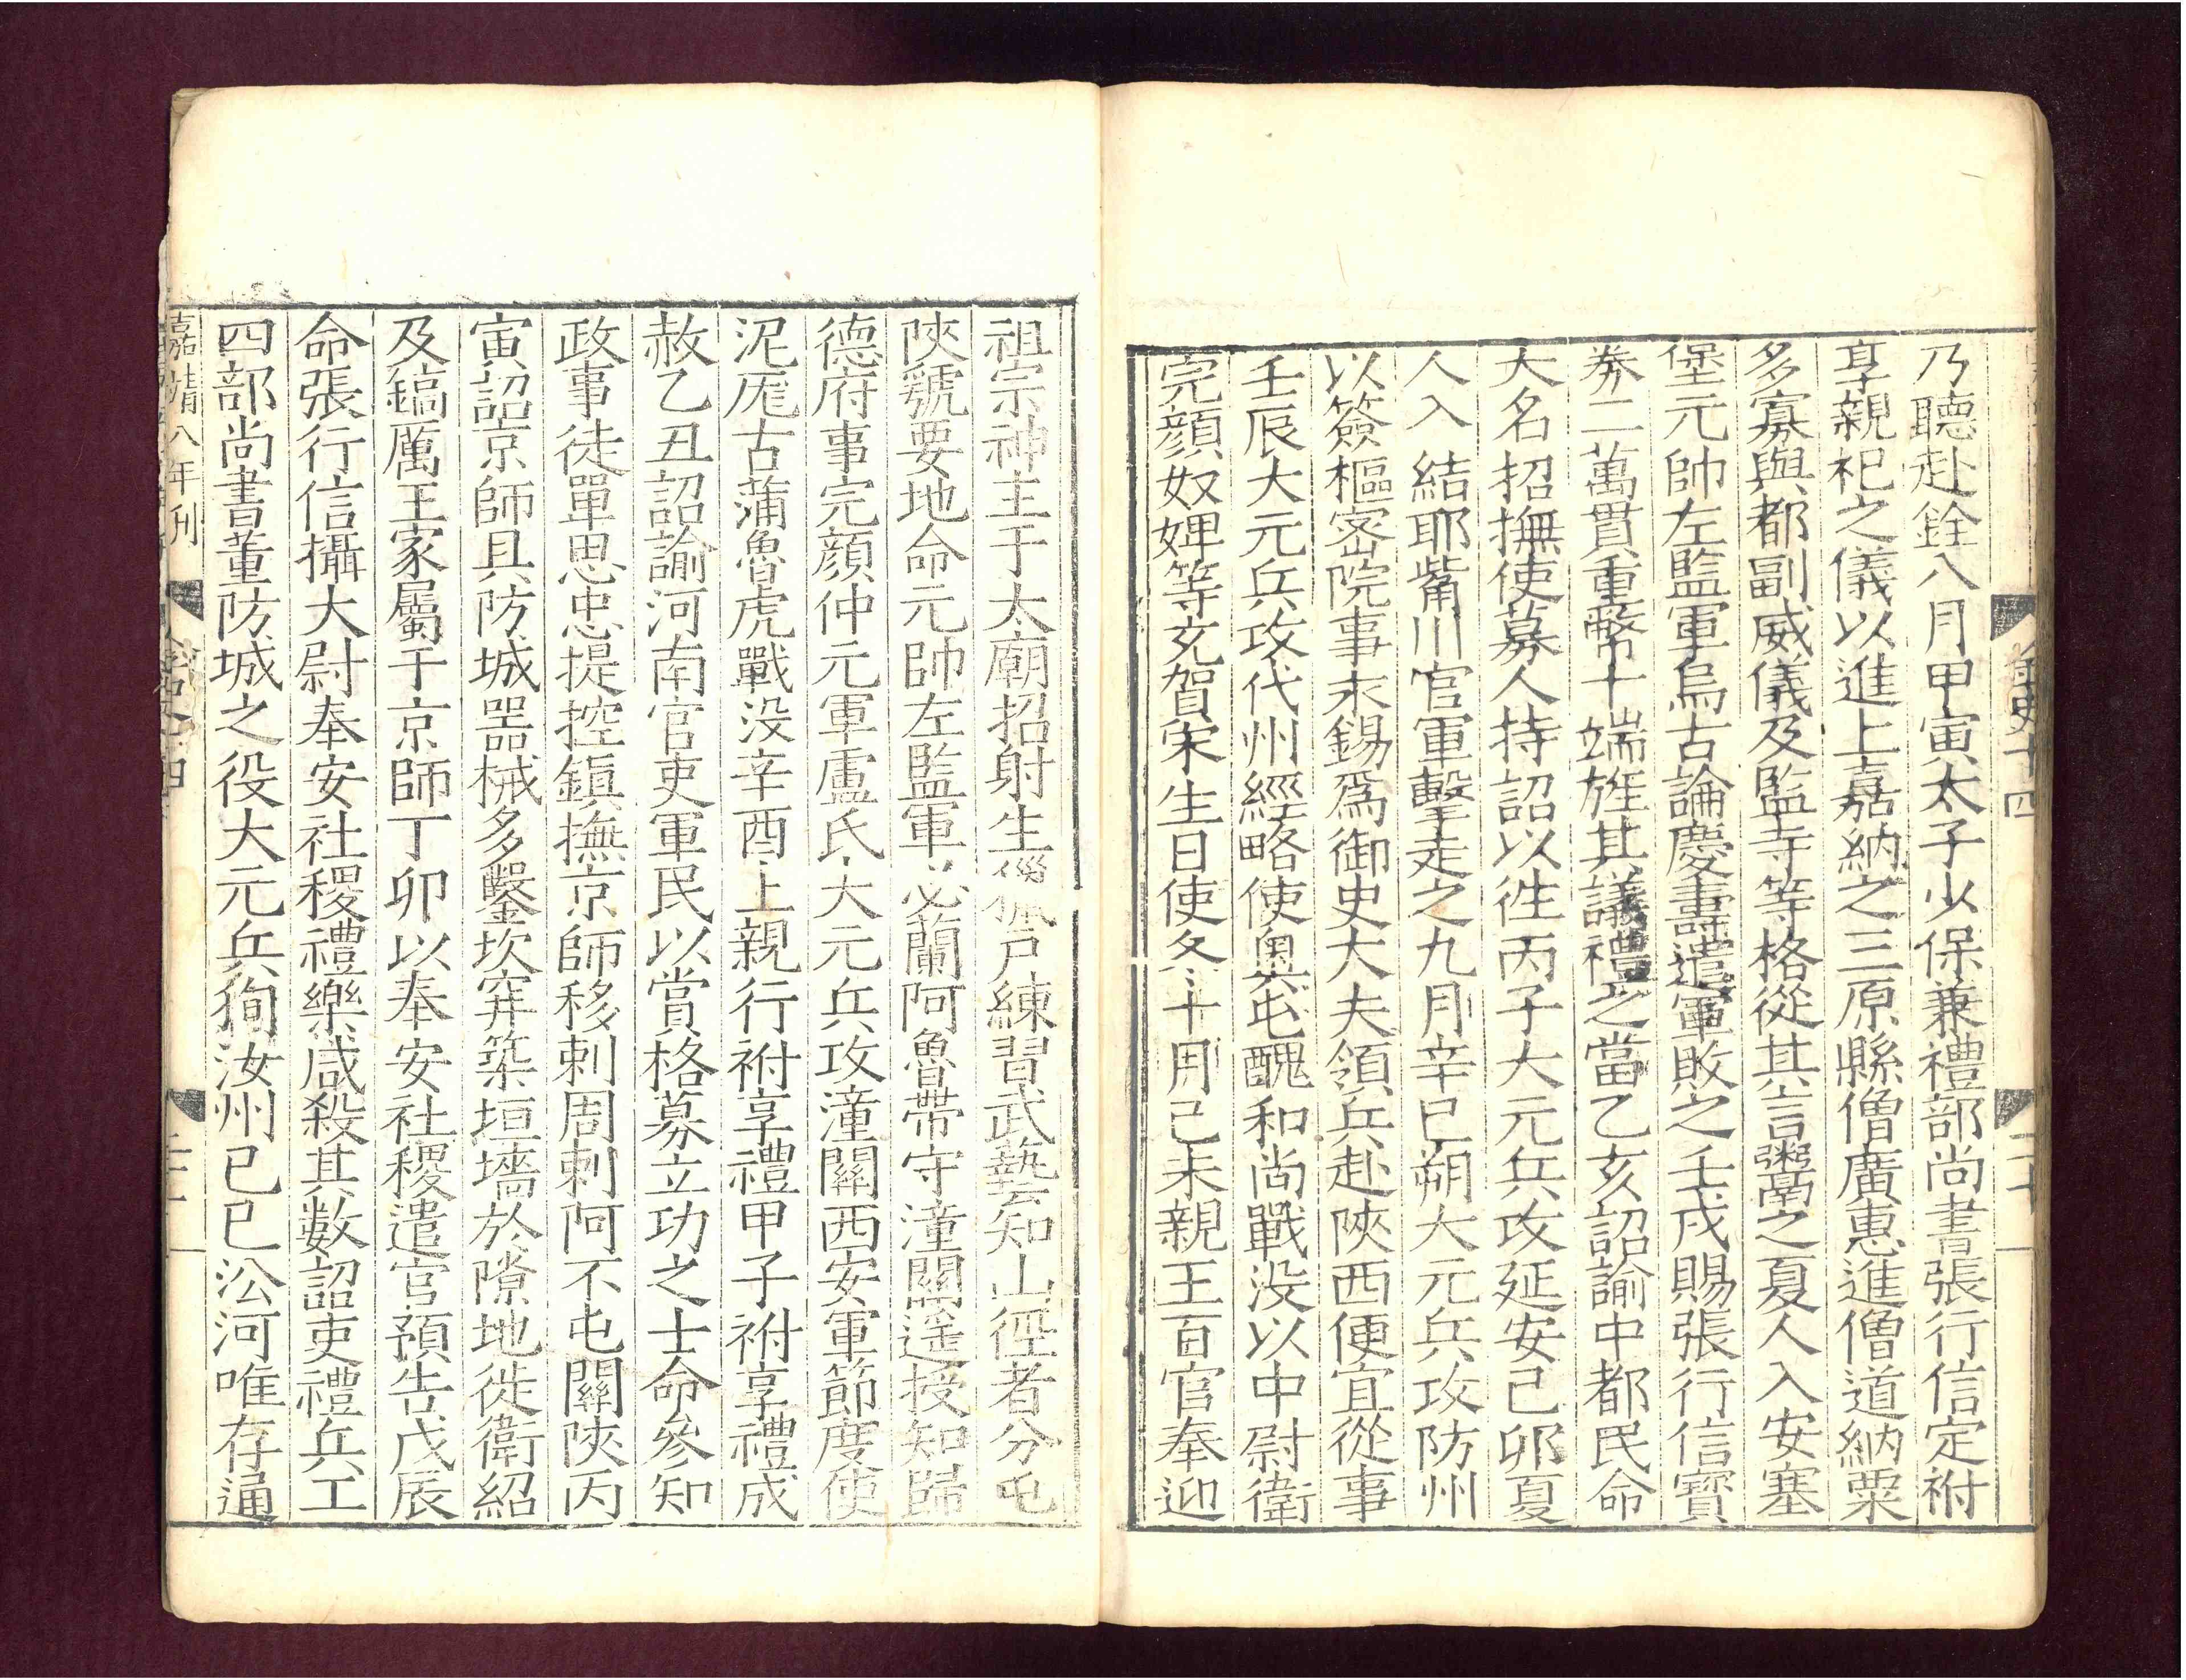 金史十四
二十
乃聽赴銓八月甲寅太子少保兼禮部尚書張行信定祔
享親祀之儀以進上嘉納之三原縣僧廣惠進僧道納粟
多寡與都副威儀及監寺等格從其言鬻之夏人入安塞
堡元帥左監軍烏古論慶壽遣軍敗之壬戌賜張行信寶
券二萬貫重幣十端旌其議禮之當乙亥詔諭中都民命
大名招撫使募人持詔以徃丙子大元兵攻延安己卯夏
人入結耶觜川官軍擊走之九月辛巳朔大元兵攻防州
以簽樞密院事永錫爲御史大夫領兵赴陝西便宜從事
壬辰大元兵攻代州經略使奧屯醜和尚戰没以中尉衛
完顔奴婢等充賀宋生日使冬十月己未親王百官奉迎
祖宗神主于太廟招射生獵戸練習武藝知山徑者分屯
陝虢要地命元帥左監軍必蘭阿魯帶守潼關遥授知歸
德府事完顔仲元軍盧氏大元兵攻潼關西安軍節度使
泥厖古蒲魯虎戰没辛酉上親行祔享禮甲子祔享禮成
赦乙丑詔諭河南官吏軍民以賞格募立功之士命參知
政事徒單思忠提控鎮撫京師移剌周剌阿不屯關陝丙
寅詔京師具防城器械多鑿坎穽築垣墻於隙地徙衛紹
及鎬厲王家屬于京師丁卯以奉安社稷遣官預告戊辰
命張行信攝大尉奉安社稷禮樂咸殺其數詔吏禮兵工
四部尚書董防城之役大元兵徇汝州已巳㳂河唯存通
嘉靖八年刊